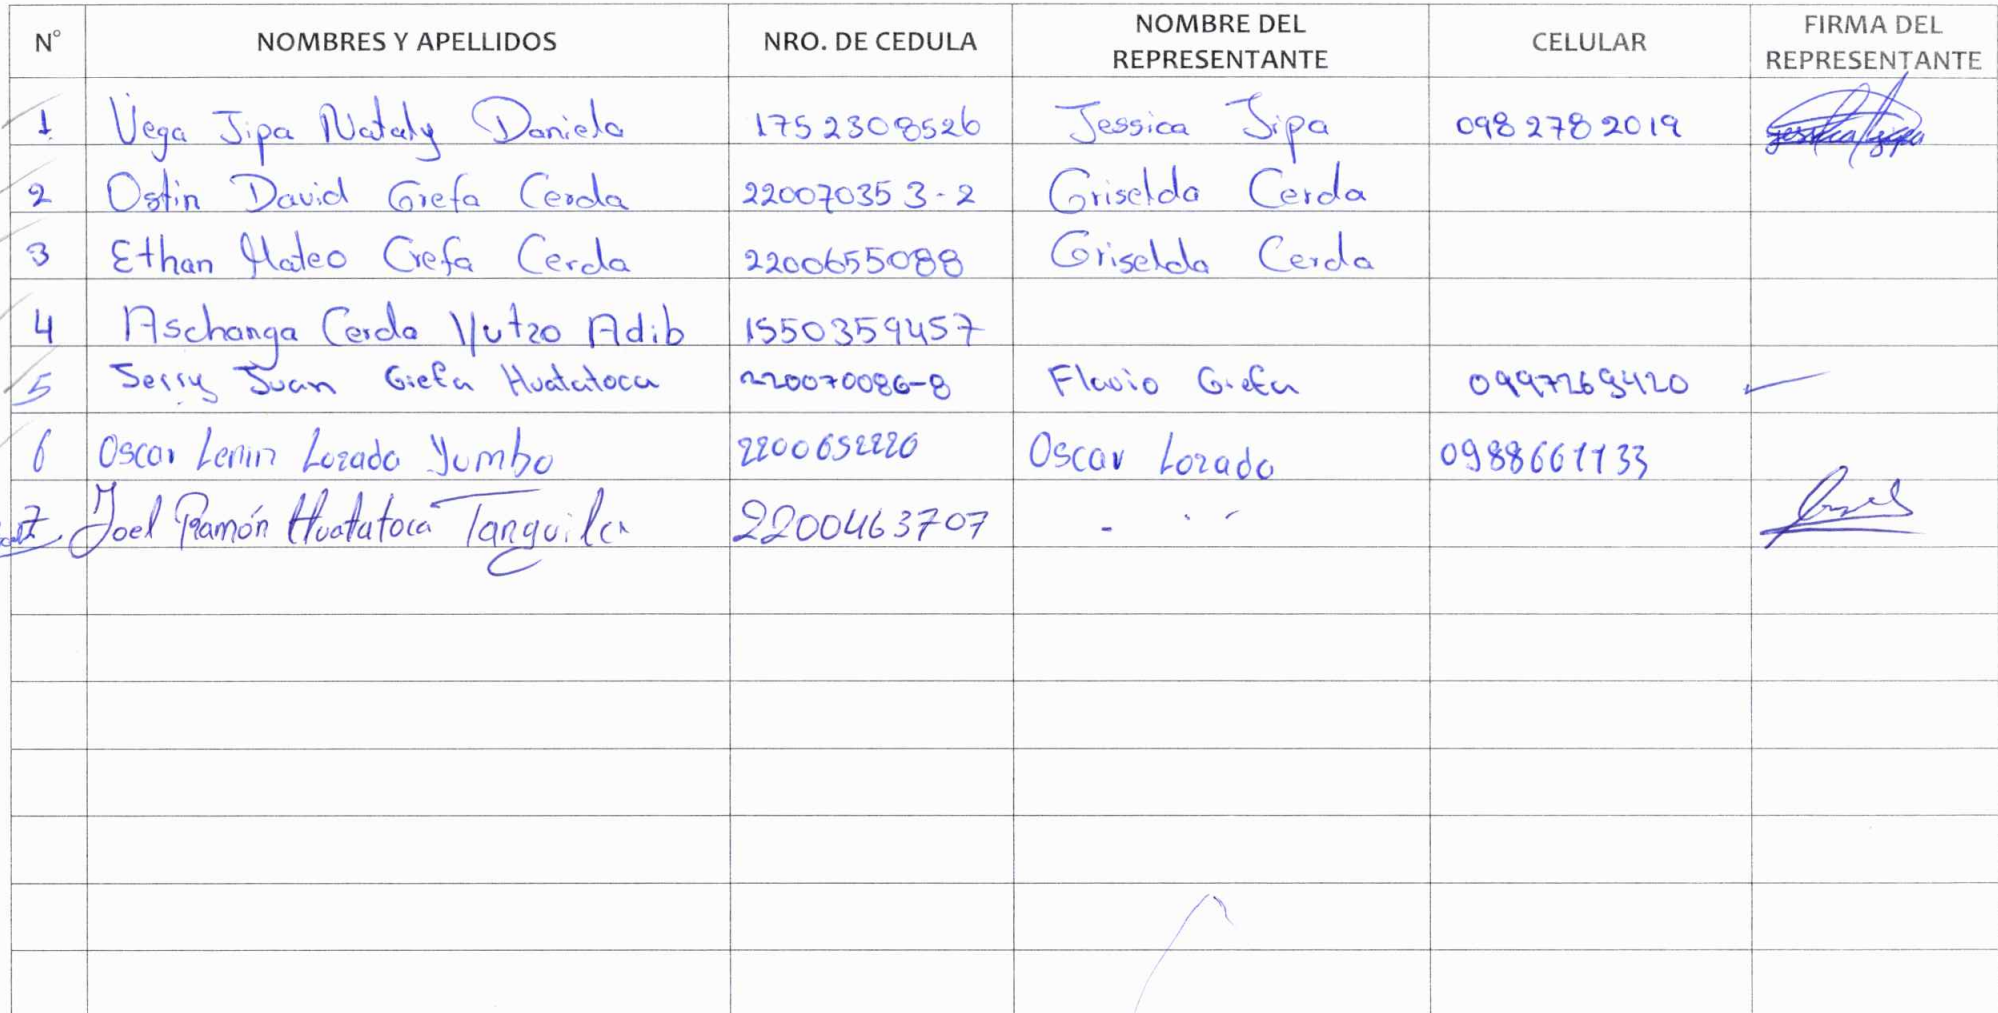 N° NOMBRES Y APELLIDOS NRO. DE CEDULA NOMBRE DEL REPRESENTANTE CELULAR FIRMA DEL REPRESENTANTE
1 Vega Jipa Nataly Daniela 1752308526 Jessica Jipa 0982782019
2 Ostin David Grefa Cerda 220070353-2 Griselda Cerda
3 Ethan Mateo Grefa Cerda 2200655088 Griselda Cerda
4 Aschanga Cerda Yutzo Adib 1550359457
5 Jerry Juan Grefa Huatatoca 220070086-8 Flavio Grefa 0997269420
6 Oscar Lenin Lozada Yumbo 2200652220 Oscar Lozada 0988661133
7 Joel Ramón Huatatoca Tanguila 2200463707